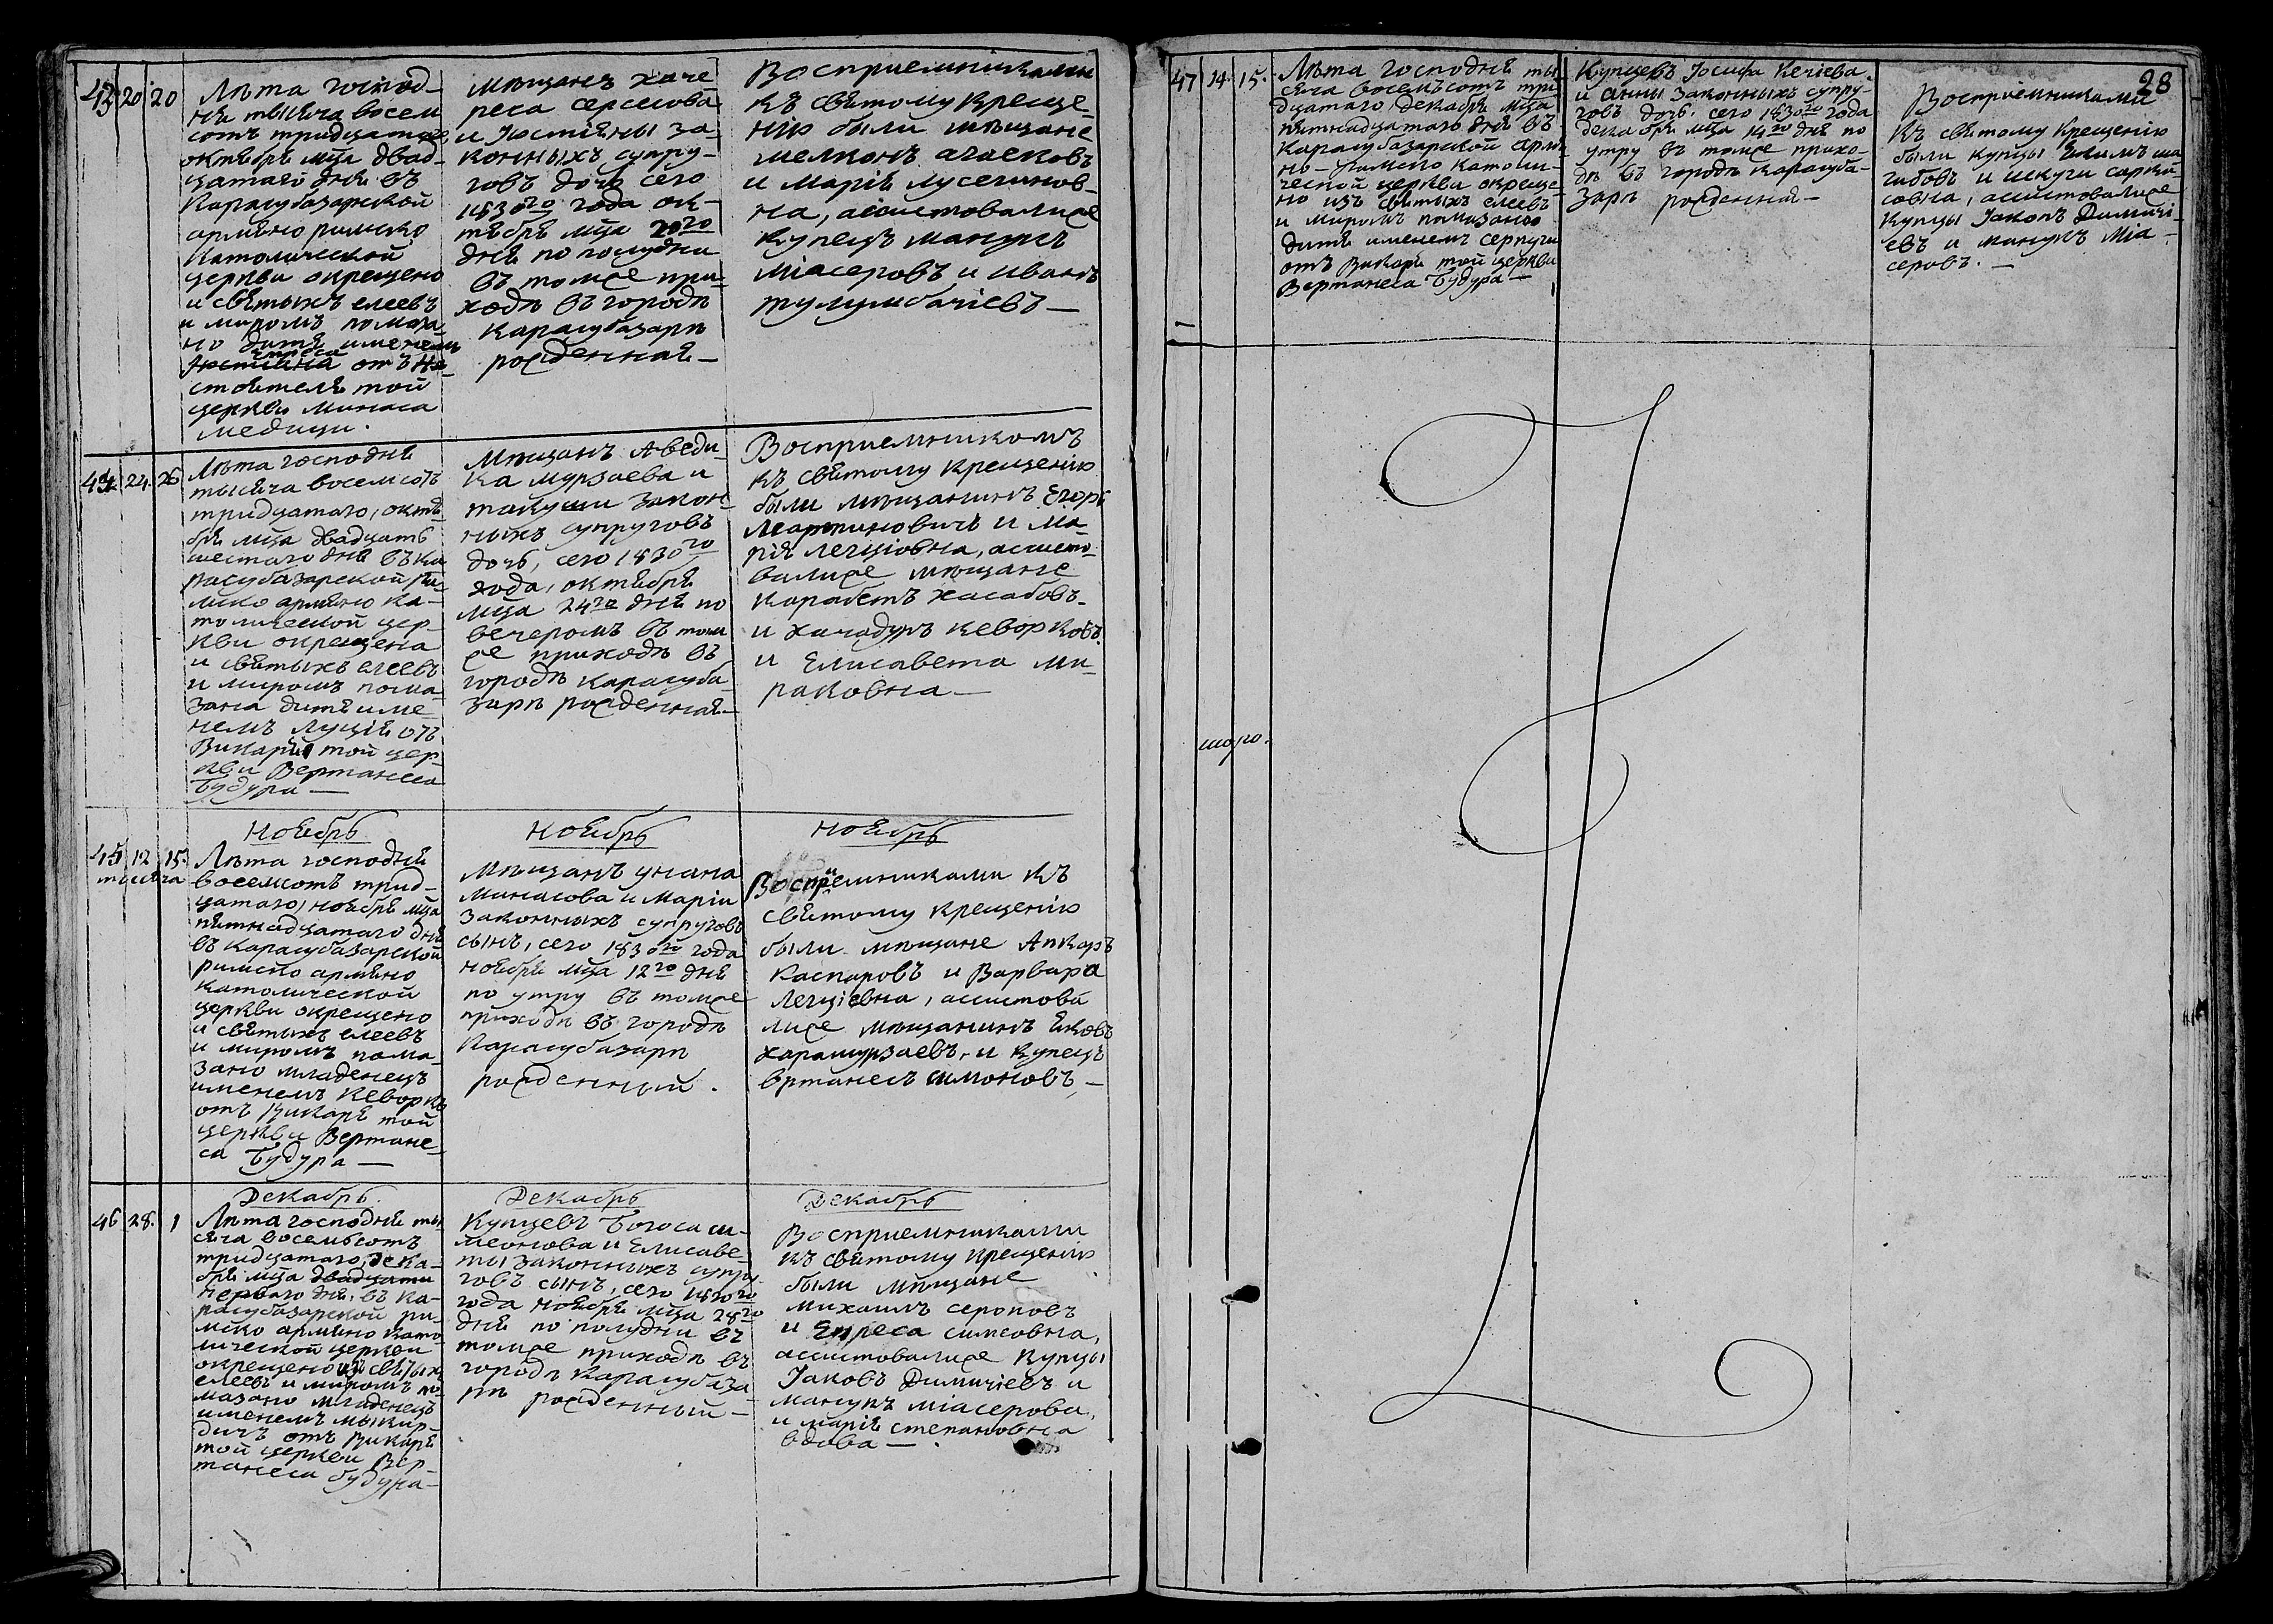 43 20 20
Лѣта господ-
ня тысяча восем
сотъ тридцатаго
октября мца двад-
цатаго дня въ
Карасубазарской
армяно римско
католической
церкви окрещено
и святыхъ елеевъ
и миромъ помаза-
но дитя именемъ
Епреса
Юстияна отъ На-
стоятеля той
церкви Минаса
Медици.
Мѣщанъ Хаче
реса Серсесова
и Юстіяны за-
конныхъ супру-
говъ дочь сего
1830го года ок-
тября мца 20го
дня по полудни
въ томже при-
ходѣ въ городѣ
Карасубазарѣ
рожденная—
Восприемниками
къ святому креще-
нію были мѣщане
Мелконъ
и Марія Лусегинов-
на, асистовалисе
купецъ Манукъ
Міасеровъ и Иванъ
Тулумбачіевъ—
44 24. 26
Лѣта господня
тысяча восемсотъ
тридцатаго, октя-
бря мца двадцать
шестаго дня въ Ка
расубазарской Ри-
мско армяно ка-
толической цер-
кви окрещена
и святыхъ елеевъ
и миромъ пома-
зана дитя име-
немъ Луція отъ
Викарія той цер-
кви Вертанеса
Будура—
Мѣщанъ Аведи-
ка Мурзаева и
Такуши закон-
ныхъ супруговъ
дочь, сего 1830го
года, октября
мца 24го дня по
вечеромъ въ том
же приходѣ въ
городѣ Карасуба-
зарѣ рожденная—
Восприемникомъ
къ святому крещенію
были мѣщанинъ Егоръ
Мартиновичъ и Ма-
рія Легціовна, асисто-
валисе мѣщане
Карабетъ Хасабовъ
и Хачадуръ Кеворковъ
и Елисавета Ми-
раковна—
Ноябрь
45 12 15.
тысяча
Лѣта господня
восемсотъ трид-
цатаго, ноября мца
пятнадцатаго дня
въ Карасубазарской
римско армяно
католической
церкви окрещено
и святыхъ елеевъ
и миромъ пома
зано младенецъ
именемъ Кеворкъ
отъ Викаря той
церкви Вертане-
са Будура—
Ноябрь
Мѣщанъ Унана
Минасова и Маріи
законныхъ супруговъ
сынъ, сего 1830го года
ноября мца 12го дня
по утру въ томже
приходѣ въ городѣ
Карасубазарѣ
рожденный.
Ноябрь
Восприемниками къ
святому крещенію
были мѣщане Апкаръ
Каспаровъ и Варвара
Легціевна, асистова
лисе мѣщанинъ Яковъ
Харамурзаевъ, и купецъ
Вртанесъ Шмоновъ,—
Декабрь
46 28. 1
Лѣта господня ты
сяча восемьсотъ
тридцатаго, дека-
бря мца двадцати
перваго дня, въ Ка-
расубазарской ри-
мско армяно като-
лической церкви
окрещено изъ святыхъ
елеевъ и миромъ по-
мазано младенецъ
именемъ Мыкир-
дичъ отъ Викаря
той церкви Вер-
танеса Будура—
Декабрь
Купцевъ Богоса Си-
меонова и Елисаве-
ты законныхъ супру-
говъ сынъ, сего 1830го
года ноября мца 28го
дня по полудни въ
томже приходѣ въ
городѣ Карасубаза-
рѣ рожденный—
Декабрь
Восприемниками
къ святому крещенію
были мѣщане
Михаилъ Сероповъ
и Епреса Симеовна,
асистовалисе купцы
Іаковъ Димичіевъ и
Манукъ Міасерова,
и Марія Степановна
вдова—.
28
47 14. 15.
Лѣта господня ты-
сяча восемьсотъ три-
дцатаго, декабря мца
пятнадцатаго дня въ
Карасубазарской армя-
но-римско католи-
ческой церкви окреще-
но изъ святыхъ елеевъ
и миромъ помазано
дитя именемъ Серпуги
отъ Викаря той церкви
Вертанеса Будура—
Купцевъ Іосифа Кечіева
и Анны законныхъ супру-
говъ дочь, сего 1830го года
декабря мца 14го дня по
утру въ томже прихо-
дѣ въ городѣ Карасуба-
зарѣ рожденная—
Восприемниками
къ святому крещенію
были купцы Екимъ Ша
гибовъ и Искуги Сарки-
совна, асистовалисе
купцы Іакопъ Димичі-
евъ и Манукъ Міа-
серовъ.—